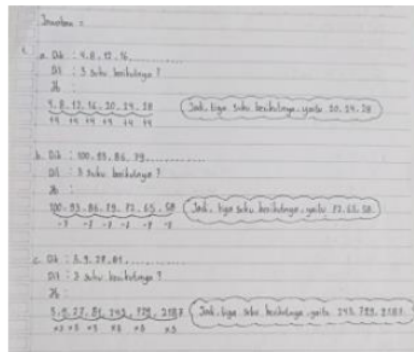 Jawaban =
1.
a. Dik : 4, 8, 12, 16, ............
Dit : 3 suku berikutnya ?
Jb :
4, 8, 12, 16, 20, 24, 28
+4 +4 +4 +4 +4 +4
Jadi, tiga suku berikutnya, yaitu 20, 24, 28
b. Dik : 100, 93, 86, 79, ............
Dit : 3 suku berikutnya ?
Jb :
100, 93, 86, 79, 72, 65, 58
-7 -7 -7 -7 -7 -7
Jadi, tiga suku berikutnya, yaitu 72, 65, 58.
c. Dik : 3, 9, 27, 81, ............
Dit : 3 suku berikutnya ?
Jb :
3, 9, 27, 81, 243, 729, 2187
×3 ×3 ×3 ×3 ×3 ×3
Jadi, tiga suku berikutnya, yaitu 243, 729, 2187.